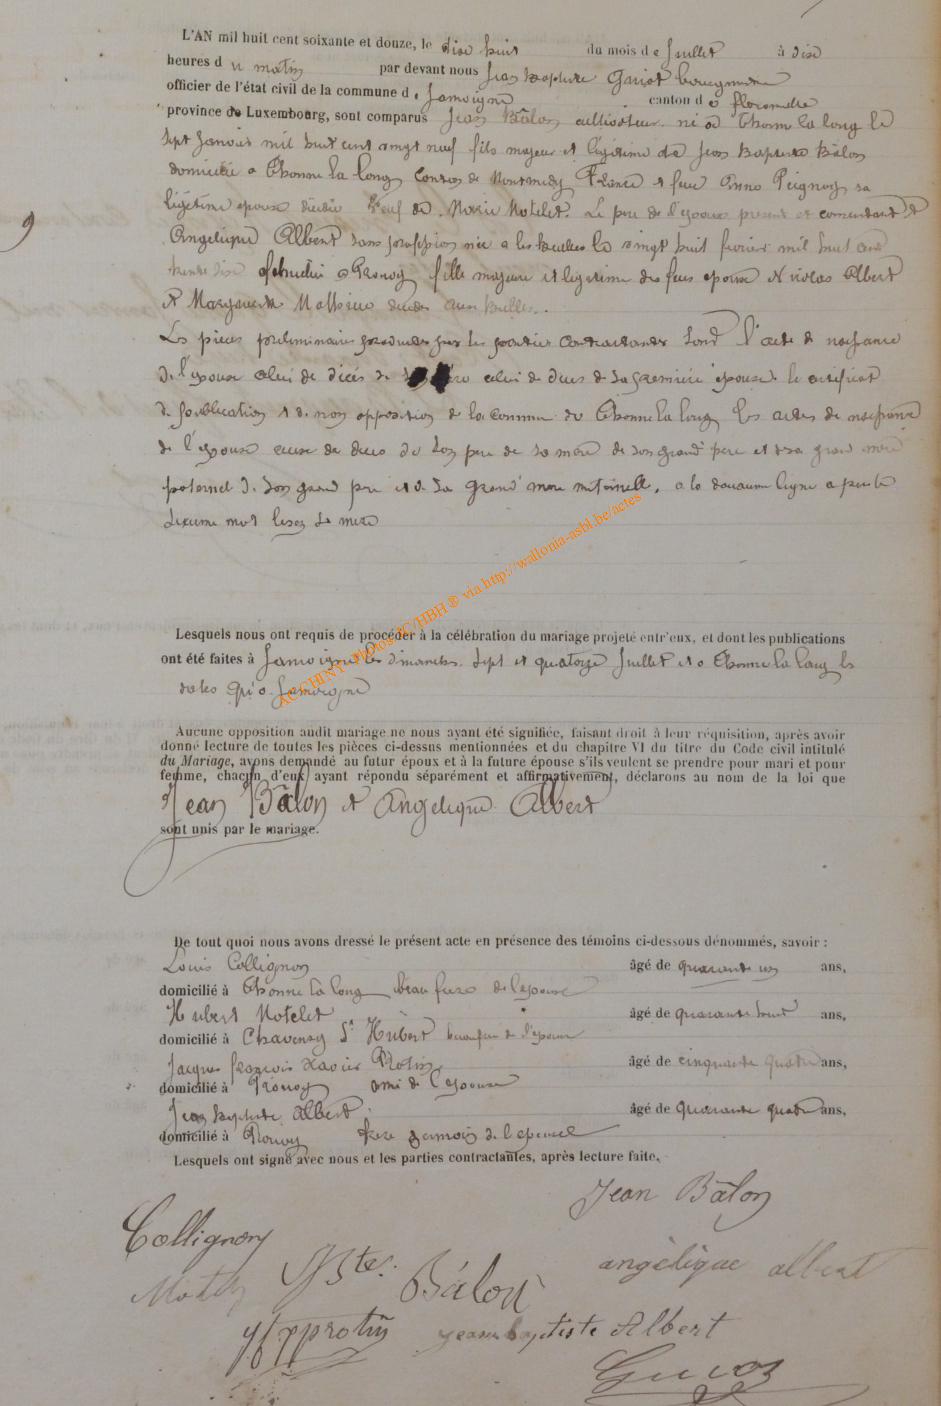 L'AN mil huit cent soixante et douze, le dise huit du mois de Juillet à dise
heures du matin par devant nous Jean Baptiste bourgmestre
officier de l'état civil de la commune de Jamoigne canton de florenville
province de Luxembourg, sont comparus Jean Bâlon cultivateur né à Thonne la long le
sept Janvier mil huit cent vingt neuf fils majeur et légitime de Jean Baptiste Bâlon
domicilié a Thonne la long Canton de Montmedy France et feue Anne Peignoy sa
légitime epouse décédée Veuf de Marie Motelet. Le père de l'epoux present et consentant et
Angelique Albert sans profession née a les bulles le vingt huit fevrier mil huit cent
trente dise a Prouvoy fille majeure et legitime des feus epoux Nicolas Albert
et Marguerite décédés aux Bulles.
Les pieces preliminaires produites par les parties contractantes sont l'acte de naissance
de l'epoux celui de décès de sa mère celui de deces de sa premiere epouse le certificat
de publication et de non opposition de la commune de Thonne la long les actes de naissance
de l'epouse ceux de deces de son pere de sa mere de son grand pere et de sa grand mere
paternel de son grand pere et de sa grand mere maternelle, a la douzieme ligne a
dixieme mot lisez sa mere
Lesquels nous ont requis de procéder à la célébration du mariage projeté entr'eux, et dont les publications
ont été faites à Jamoigne les dimanches sept et quatorze Juillet et a Thonne la long les
dates qu'a Jamoigne
Aucune opposition audit mariage ne nous ayant été signifiée, faisant droit à leur réquisition, après avoir
donné lecture de toutes les pièces ci-dessus mentionnées et du chapitre VI du titre du Code civil intitulé
du Mariage, avons demandé au futur époux et à la future épouse s'ils veulent se prendre pour mari et pour
femme, chacun d'eux ayant répondu séparément et affirmativement, déclarons au nom de la loi que
Jean Bâlon et Angelique Albert
sont unis par le mariage.
De tout quoi nous avons dressé le présent acte en présence des témoins ci-dessous dénommés, savoir :
Louis Collignon âgé de quarante un ans,
domicilié à Thonne la long beau frere de l'epoux
Hubert Motelet âgé de quarante huit ans,
domicilié à Chavency St Hubert beaufrere de l'epoux
Jacques françois Xavier Protin âgé de cinquante quatre ans,
domicilié à Prouvoy ami de l'epouse
Jean baptiste Albert âgé de quarante quatre ans,
domicilié à Prouvoy frere germain de l'epouse
Lesquels ont signé avec nous et les parties contractantes, après lecture faite.
Jean Bâlon
Collignon
angèlique albert
J Bte. Bâlon
jfxprotin jeanbaptiste Albert
© via http://wallonia-asbl.be/actes